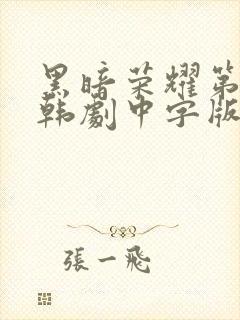 黑暗荣耀第
韩劇中字版
張一飛